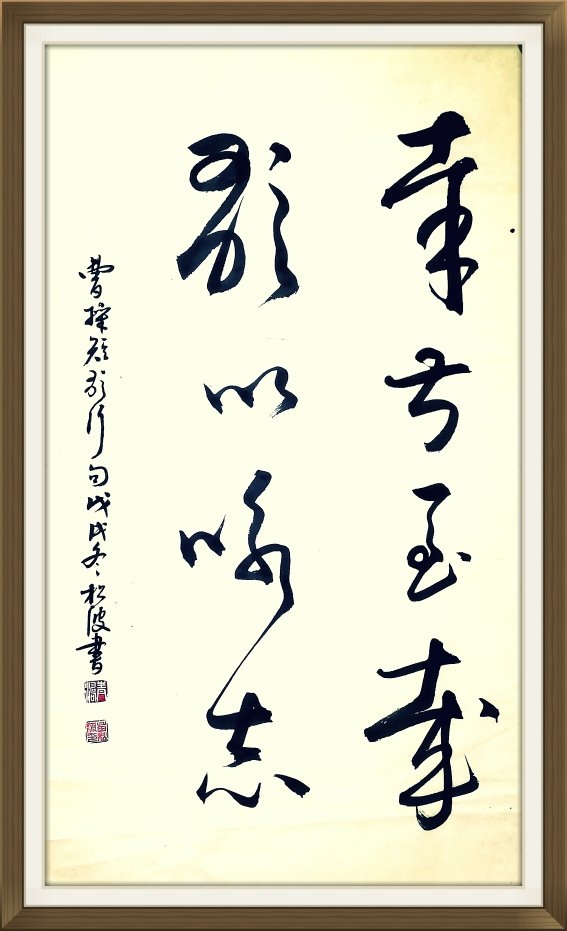 幸甚至哉
歌以咏志
曹操短歌行句戊戌冬松波書